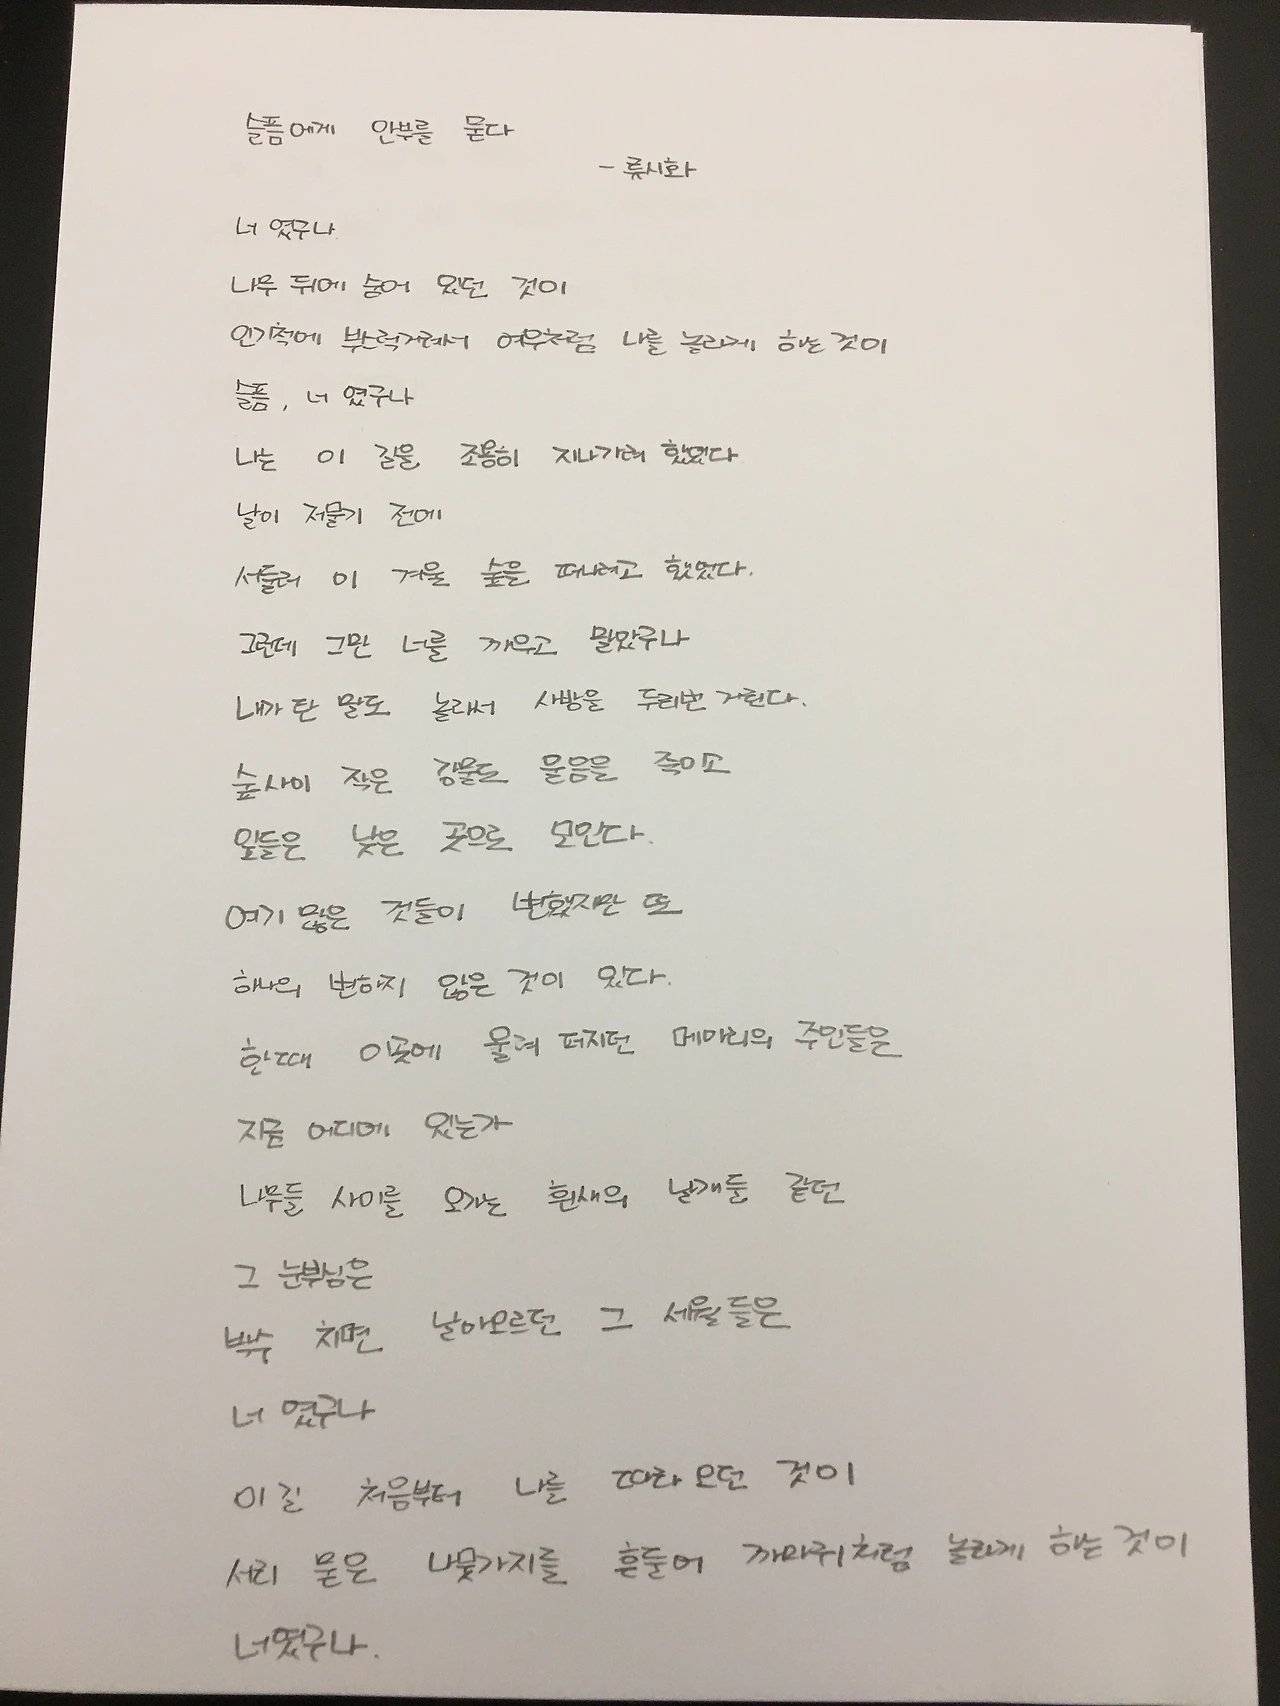 슬픔에게 안부를 묻다
- 류시화
너 였구나
나무 뒤에 숨어 있던 것이
인기척에 부스럭거려서 여우처럼 나를 놀라게 하는 것이
슬픔, 너 였구나
나는 이 길을 조용히 지나가려 했었다
날이 저물기 전에
서둘러 이 겨울 숲을 떠나려고 했었다.
그런데 그만 너를 깨우고 말았구나
내가 탄 말도 놀라서 사방을 두리번 거린다.
숲 사이 작은 강물도 울음을 죽이고
잎들은 낮은 곳으로 모인다.
여기 많은 것들이 변했지만 또
하나의 변하지 않은 것이 있다.
한때 이곳에 울려 퍼지던 메아리의 주인들은
지금 어디에 있는가
나무들 사이를 오가는 흰새의 날개들 같던
그 눈부심은
박수 치며 날아오르던 그 세월들은
너 였구나
이 길 처음부터 나를 따라 오던 것이
서리 묻은 나뭇가지를 흔들어 까마귀처럼 놀라게 하는 것이
너였구나.